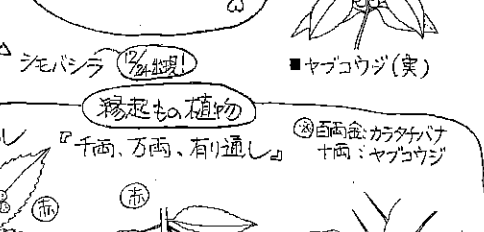 シモバシラ 12/24出現!
■ヤブコウジ(実)
縁起もの植物
『千両、万両、有り通し』
※百両金:カラタチバナ
十両:ヤブコウジ
赤
赤